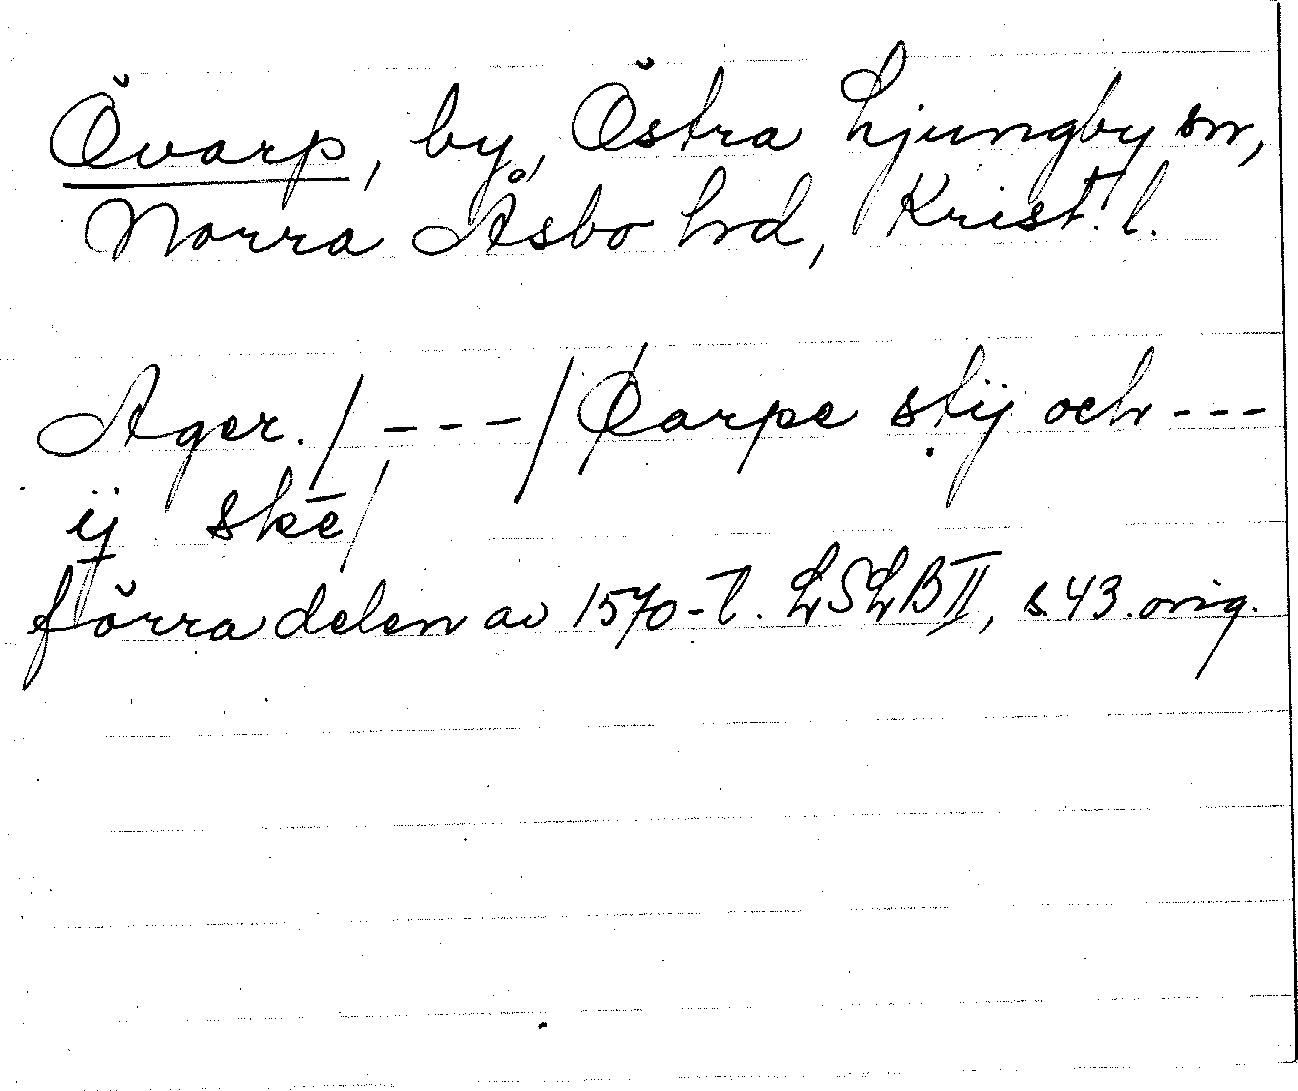 Övarp, by, Östra Ljungby sn,
Norra Åsbo hrd, Krist. l.
Ager. / - - - / Øarpe stÿ och - - -
ÿ skē /
förra delen av 1570-t. LSLB II, s. 43. orig.